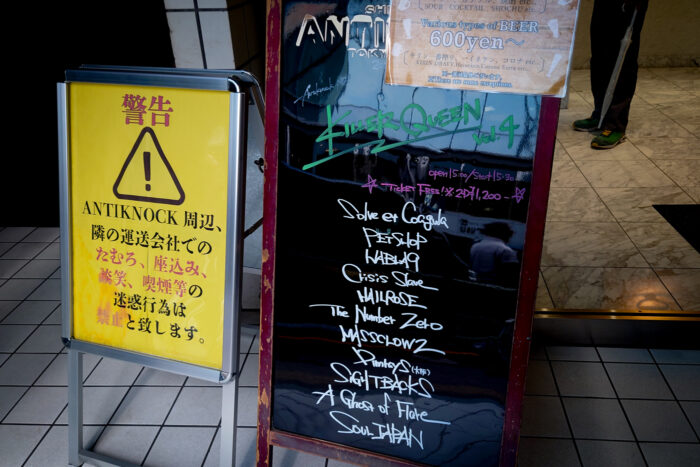 警告
ANTIKNOCK 周辺、
隣の運送会社での
たむろ、座込み、
談笑、喫煙等の
迷惑行為は
禁止と致します。
ANTIK
TOKY
SOUR COCKTAIL, SHOCHU etc.
Various types of BEER
600yen～
Antiknock
KILLER QUEEN vol.4
open 15:00/Start 15:30
☆ Ticket Free!※2D¥1,200- ☆
Solve et Coagula
PETSHOP
Crisis Slave
NAILROSE
The Number Zero
MASSCLOWZ
SIGHTBACKS
A Ghost of Flare
Soul JAPAN